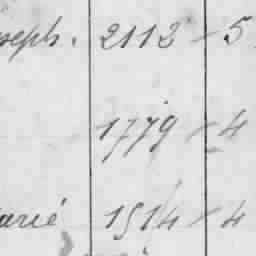 seph. 2112 - 5
1779 - 4
arié 1514 - 4